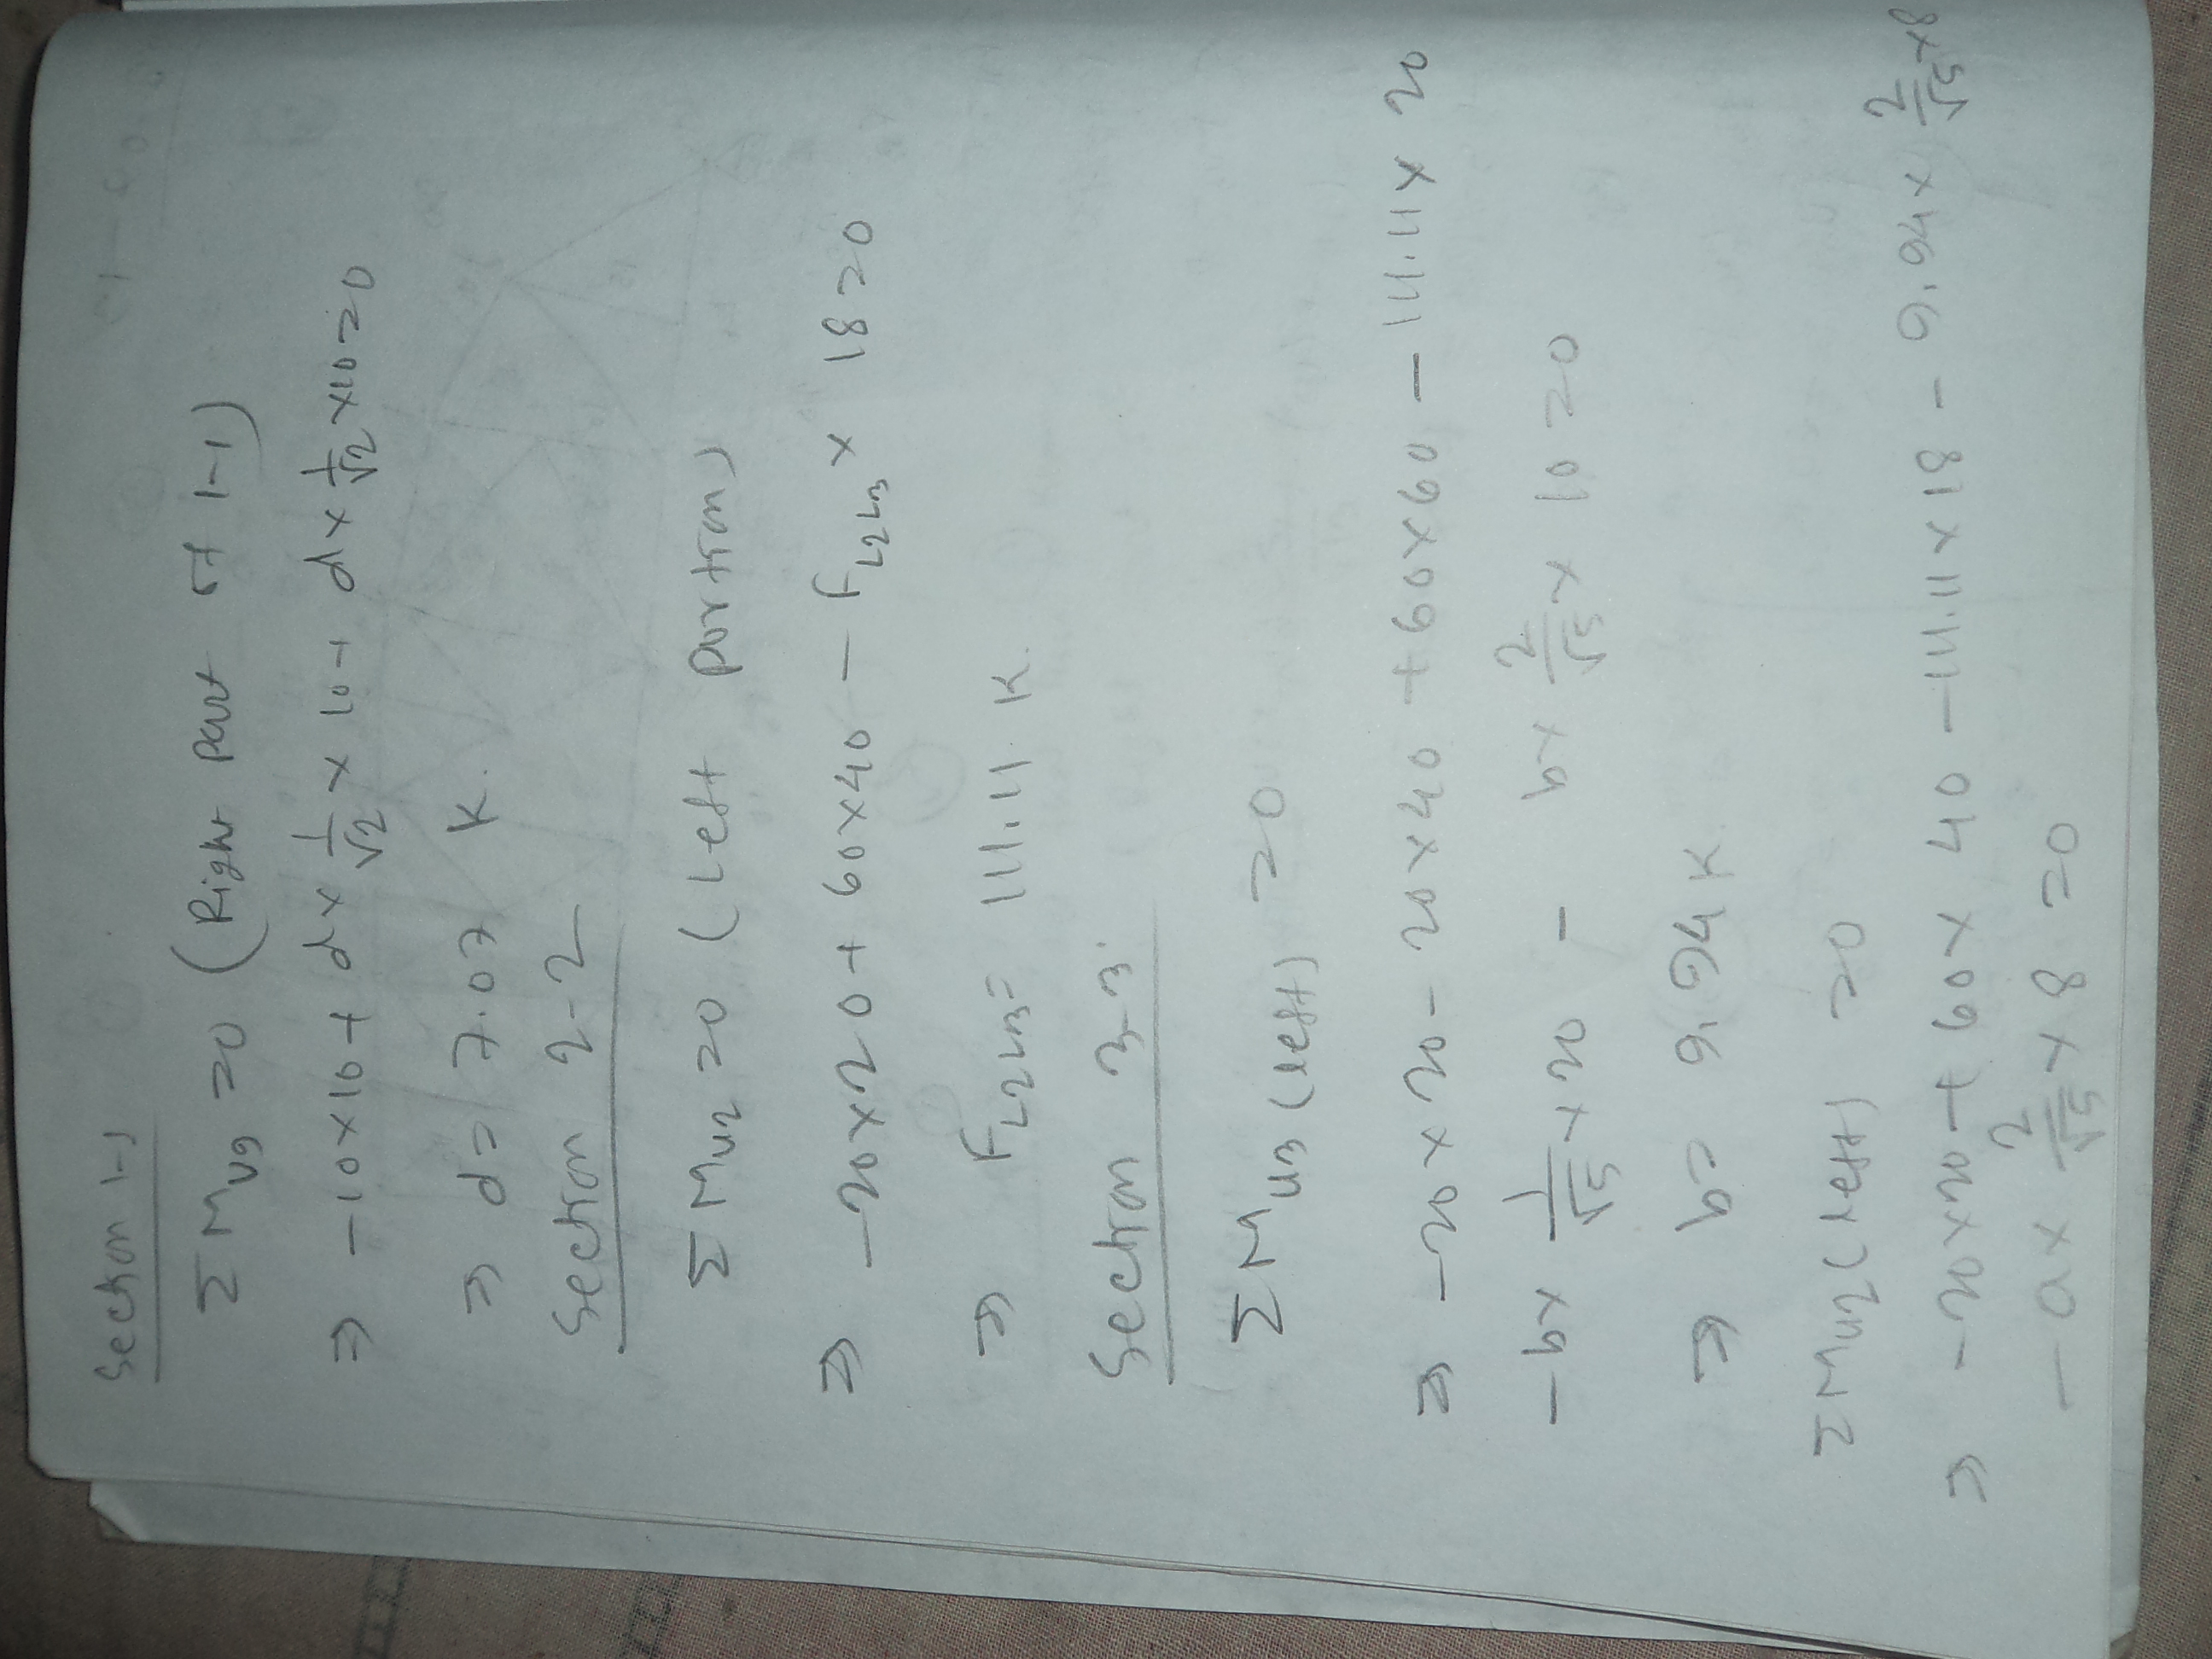 Section 1-1
ΣM_U9 = 0 (Right part of 1-1)
⇒ -10×10 + d×1/√2×10 + d×1/√2×10 = 0
⇒ d = 7.07 K.
Section 2-2
ΣM_U2 = 0 (Left portion)
⇒ -20×20 + 60×40 - F_L2L3 × 18 = 0
⇒ F_L2L3 = 111.11 K.
Section 3-3
ΣM_U3 (left) = 0
⇒ -20×20 - 20×40 + 60×60 - 111.11×20
-b×1/√5×20 - b×2/√5×10 = 0
⇒ b = 9.94 K
ΣM_U2 (left) = 0
⇒ -20×20 + 60×40 - 111.11×18 - 9.94×2/√5×8
-a×2/√5×8 = 0